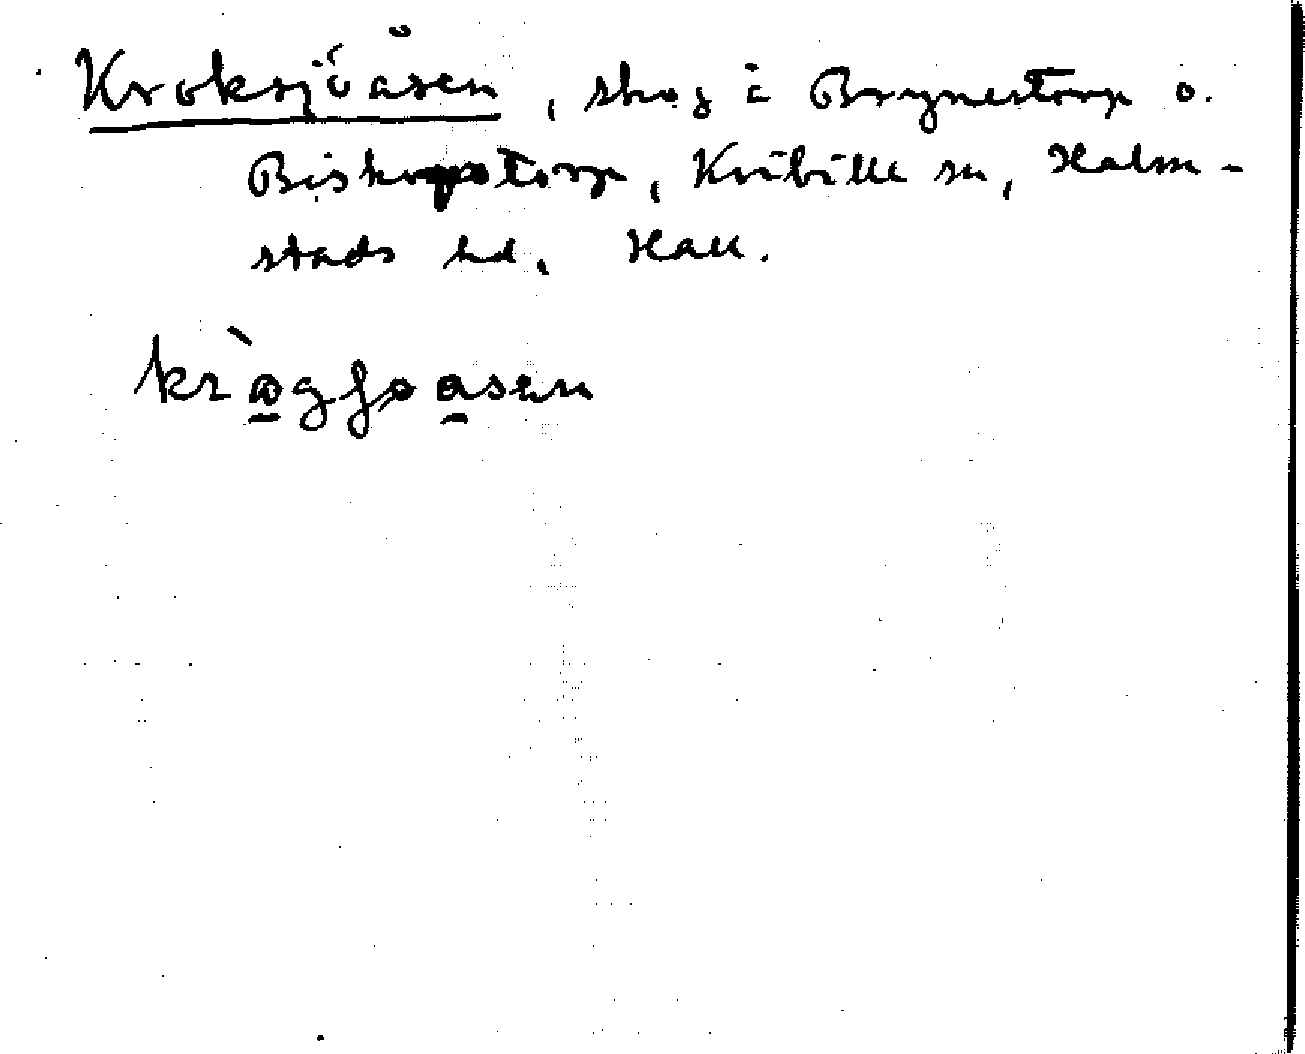 Kroksjöåsen, skog å Brynestorp o.
Biskopstorp, Kvibille sn, Halm-
stads hd. Hall.